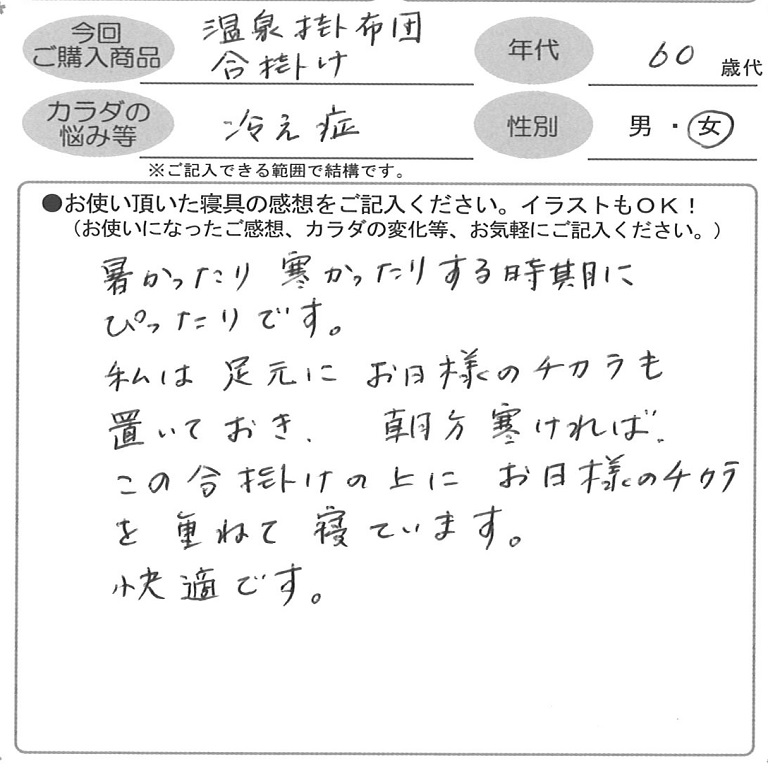 今回
ご購入商品
温泉掛布団
合掛け
年代
60 歳代
カラダの
悩み等
冷え症
性別
男・女
※ご記入できる範囲で結構です。
●お使い頂いた寝具の感想をご記入ください。イラストもOK！
（お使いになったご感想、カラダの変化等、お気軽にご記入ください。）
暑かったり 寒かったりする時期に
ぴったりです。
私は 足元に お日様のチカラも
置いておき、 朝方寒ければ、
この合掛けの上に お日様のチカラ
を 重ねて 寝ています。
快適です。